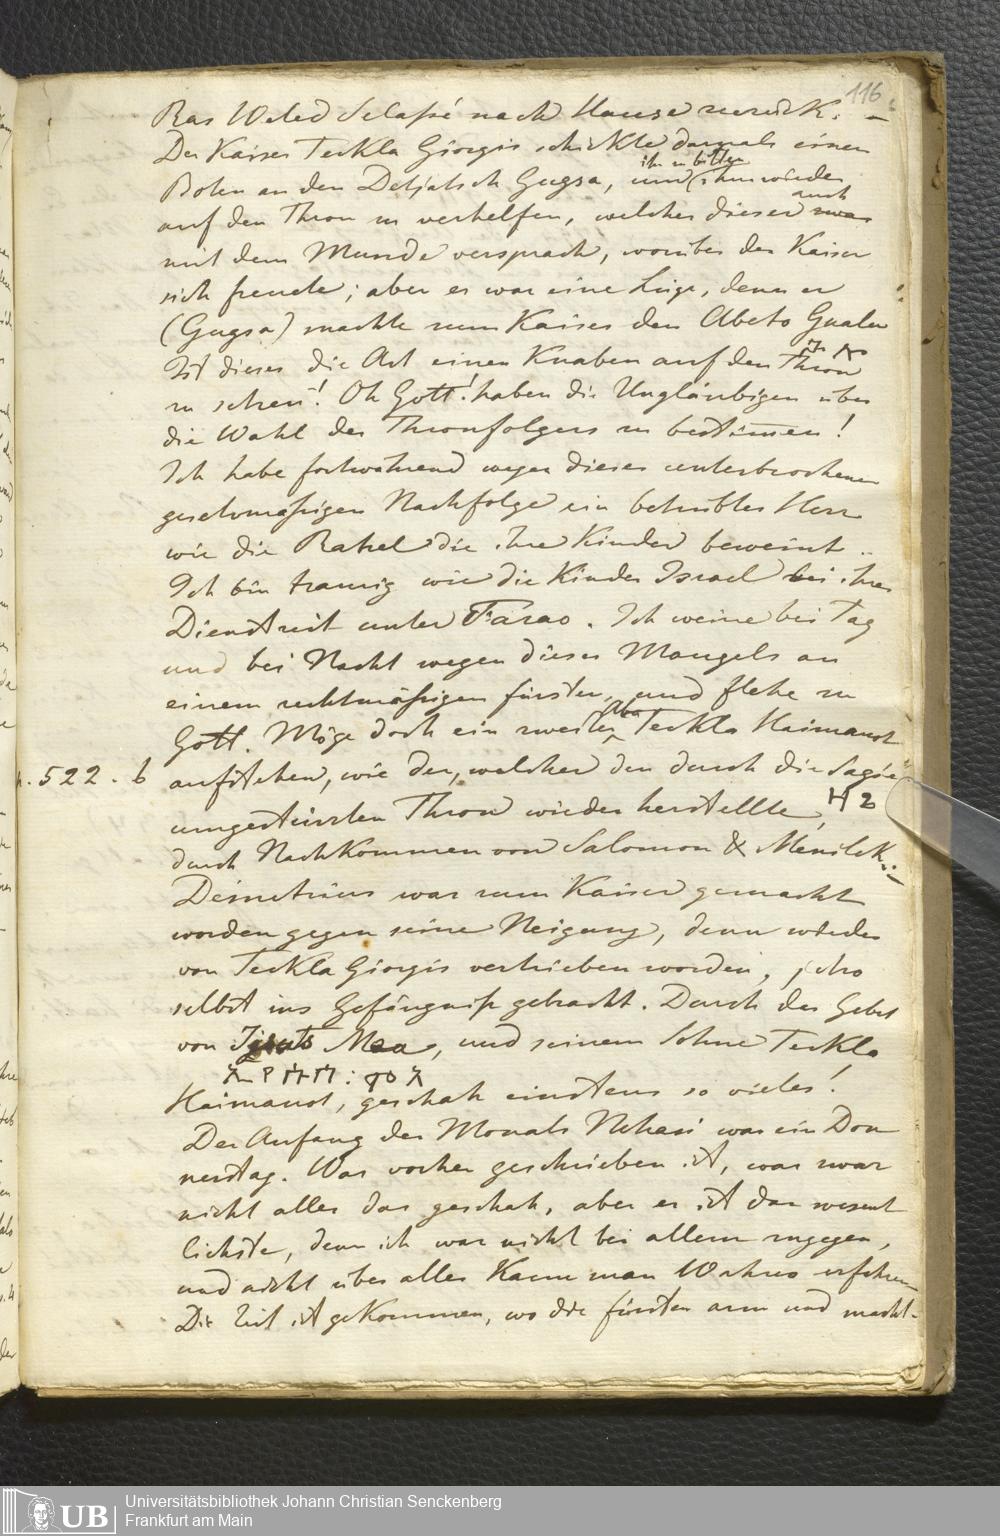 116
Ras Weled Selassé nach Hause zurück. –
Der Kaiser Teckla Giorgis schickte damals einen
Boten an den Detjatsch Gugsa, ihn zu bitten und ihm wieder
auf den Thron zu verhelfen, welches dieser auch zwar
mit dem Munde versprach, worüber der Kaiser
sich freute; aber es war eine Lüge, denn er
(Gugsa) machte zum Kaiser den Abeto Gualu
Ist dieses die Art einen Knaben auf den Thron
zu setzen! Oh Gott! haben die Ungläubigen über
die Wahl des Thronfolgers zu bestimen!
Ich habe fortwährend wegen dieser unterbrochenen
gesetzmäßigen Nachfolge ein betrübtes Herz
wie die Rahel die ihre Kinder beweint ..
Ich bin traurig wie die Kinder Israel bei ihrer
Dienstzeit unter Farao. Ich weine bei Tag
und bei Nacht wegen dieses Mangels an
einem rechtmäßigen Fürsten, und flehe zu
Gott. Möge doch ein zweiter Abba Teckla Haimanot
p. 522. b aufstehen, wie der, welcher den durch die Sagöe
umgestürzten Thron wieder herstellte,
durch Nachkommen von Salomon & Menilek. –
Demetrius war zum Kaiser gemacht
worden gegen seine Neigung, denn wieder
von Teckla Giorgis vertrieben worden, jetzo
selbst ins Gefängniß gebracht. Durch das Gebet
von Moa, und seinem Sohne Teckla
Haimanot, geschah einstens so vieles!
Der Anfang des Monats Nehasi war ein Don
nerstag. Was vorher geschrieben ist, war zwar
nicht alles das geschah, aber es ist das wesent
lichste, denn ich war nicht bei allem zugegen,
und nicht über alles kann man Wahres erfahren
Die Zeit ist gekommen, wo die Fürsten arm und macht-
UB
Universitätsbibliothek Johann Christian Senckenberg
Frankfurt am Main